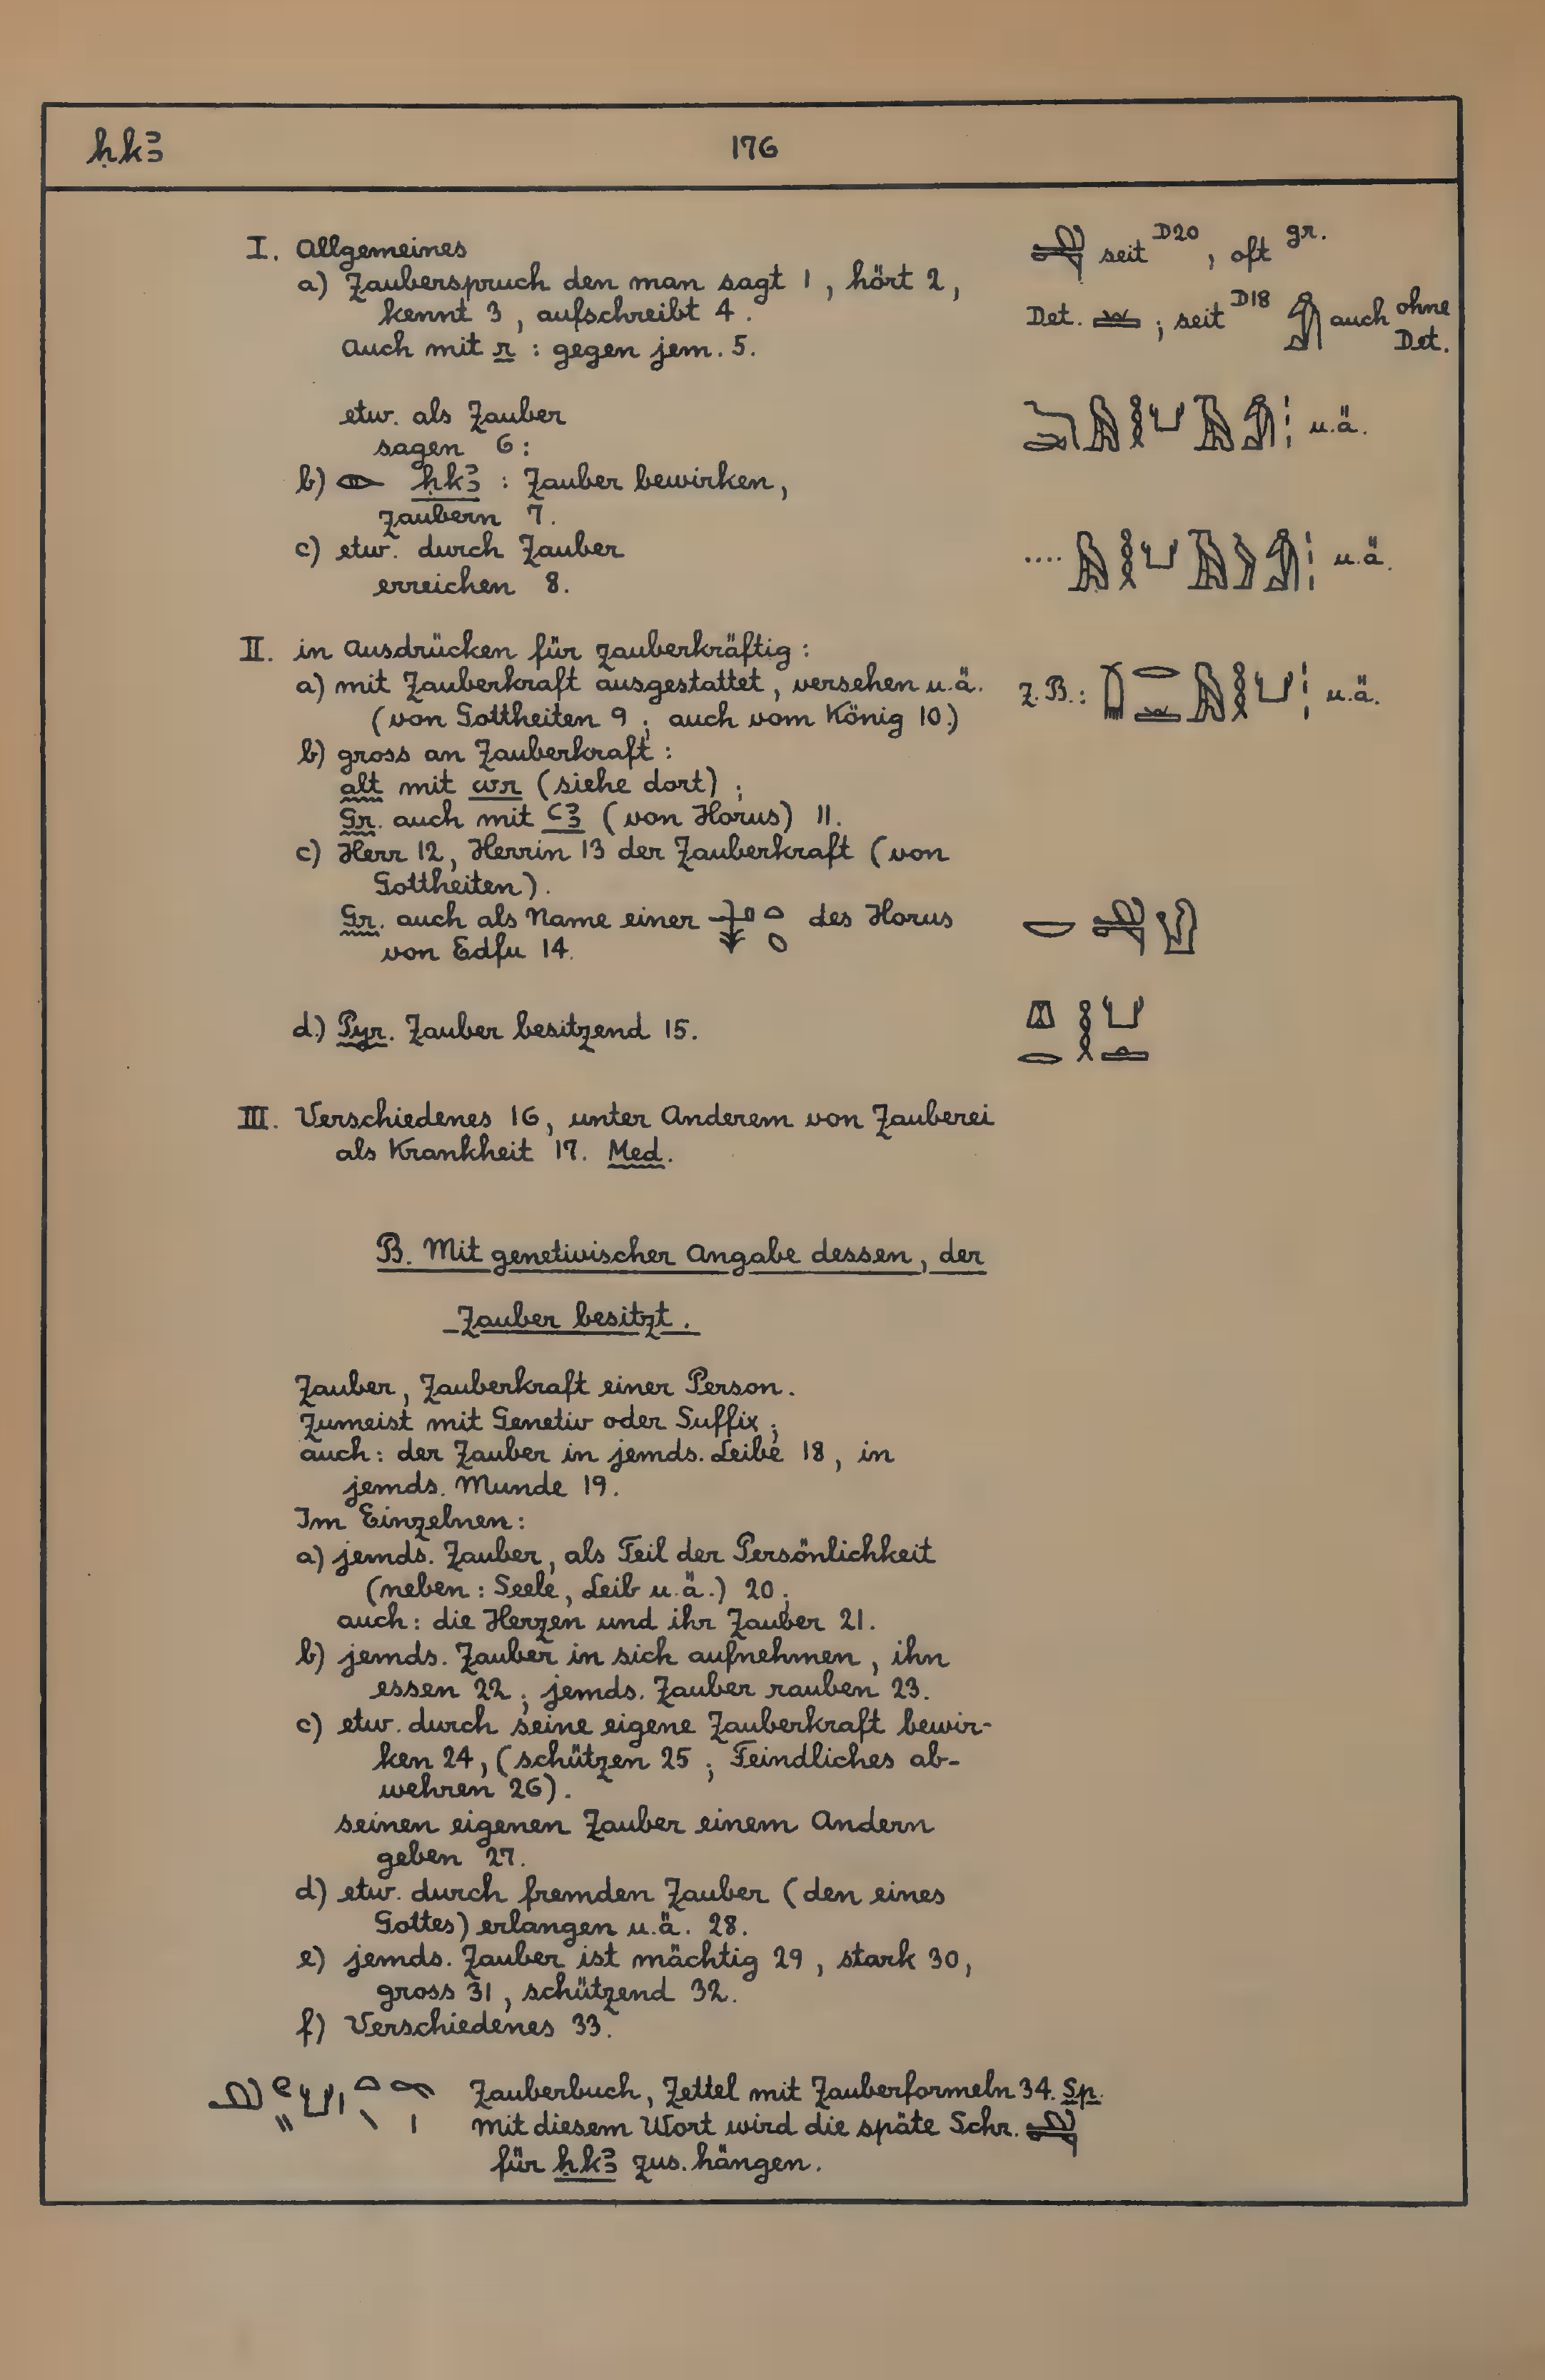 ḥkꜣ 176
I. Allgemeines
a) Zauberspruch den man sagt 1, hört 2,
kennt 3, aufschreibt 4.
Auch mit r : gegen jem. 5.
seit D20, oft gr.
Det. ; seit D18 auch ohne Det.
etw. als Zauber
sagen 6: u.ä.
b) ḥkꜣ : Zauber bewirken,
zaubern 7.
c) etw. durch Zauber
erreichen 8. .... u.ä.
II. in Ausdrücken für zauberkräftig :
a) mit Zauberkraft ausgestattet, versehen u.ä. z.B.: u.ä.
(von Gottheiten 9 ; auch vom König 10.)
b) gross an Zauberkraft :
alt mit wr (siehe dort) ;
Gr. auch mit ꜥꜣ (von Horus) 11.
c) Herr 12, Herrin 13 der Zauberkraft (von
Gottheiten).
Gr. auch als Name einer des Horus
von Edfu 14.
d.) Pyr. Zauber besitzend 15.
III. Verschiedenes 16, unter Anderem von Zauberei
als Krankheit 17. Med.
B. Mit genetivischer Angabe dessen, der
Zauber besitzt.
Zauber, Zauberkraft einer Person.
Zumeist mit Genetiv oder Suffix ;
auch : der Zauber in jemds. Leibe 18, in
jemds. Munde 19.
Im Einzelnen :
a) jemds. Zauber, als Teil der Persönlichkeit
(neben : Seele, Leib u.ä.) 20 ;
auch : die Herzen und ihr Zauber 21.
b) jemds. Zauber in sich aufnehmen, ihn
essen 22 ; jemds. Zauber rauben 23.
c) etw. durch seine eigene Zauberkraft bewir-
ken 24, (schützen 25 ; Feindliches ab-
wehren 26).
seinen eigenen Zauber einem Andern
geben 27.
d) etw. durch fremden Zauber (den eines
Gottes) erlangen u.ä. 28.
e) jemds. Zauber ist mächtig 29, stark 30,
gross 31, schützend 32.
f) Verschiedenes 33.
Zauberbuch, Zettel mit Zauberformeln 34. Sp.
mit diesem Wort wird die späte Schr.
für ḥkꜣ zus. hängen.